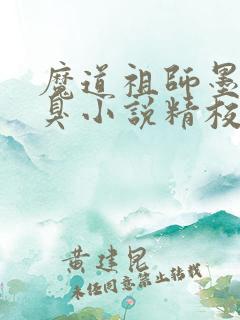 魔道祖师墨
臭小说精校
黄建昆
未经同意禁止转载